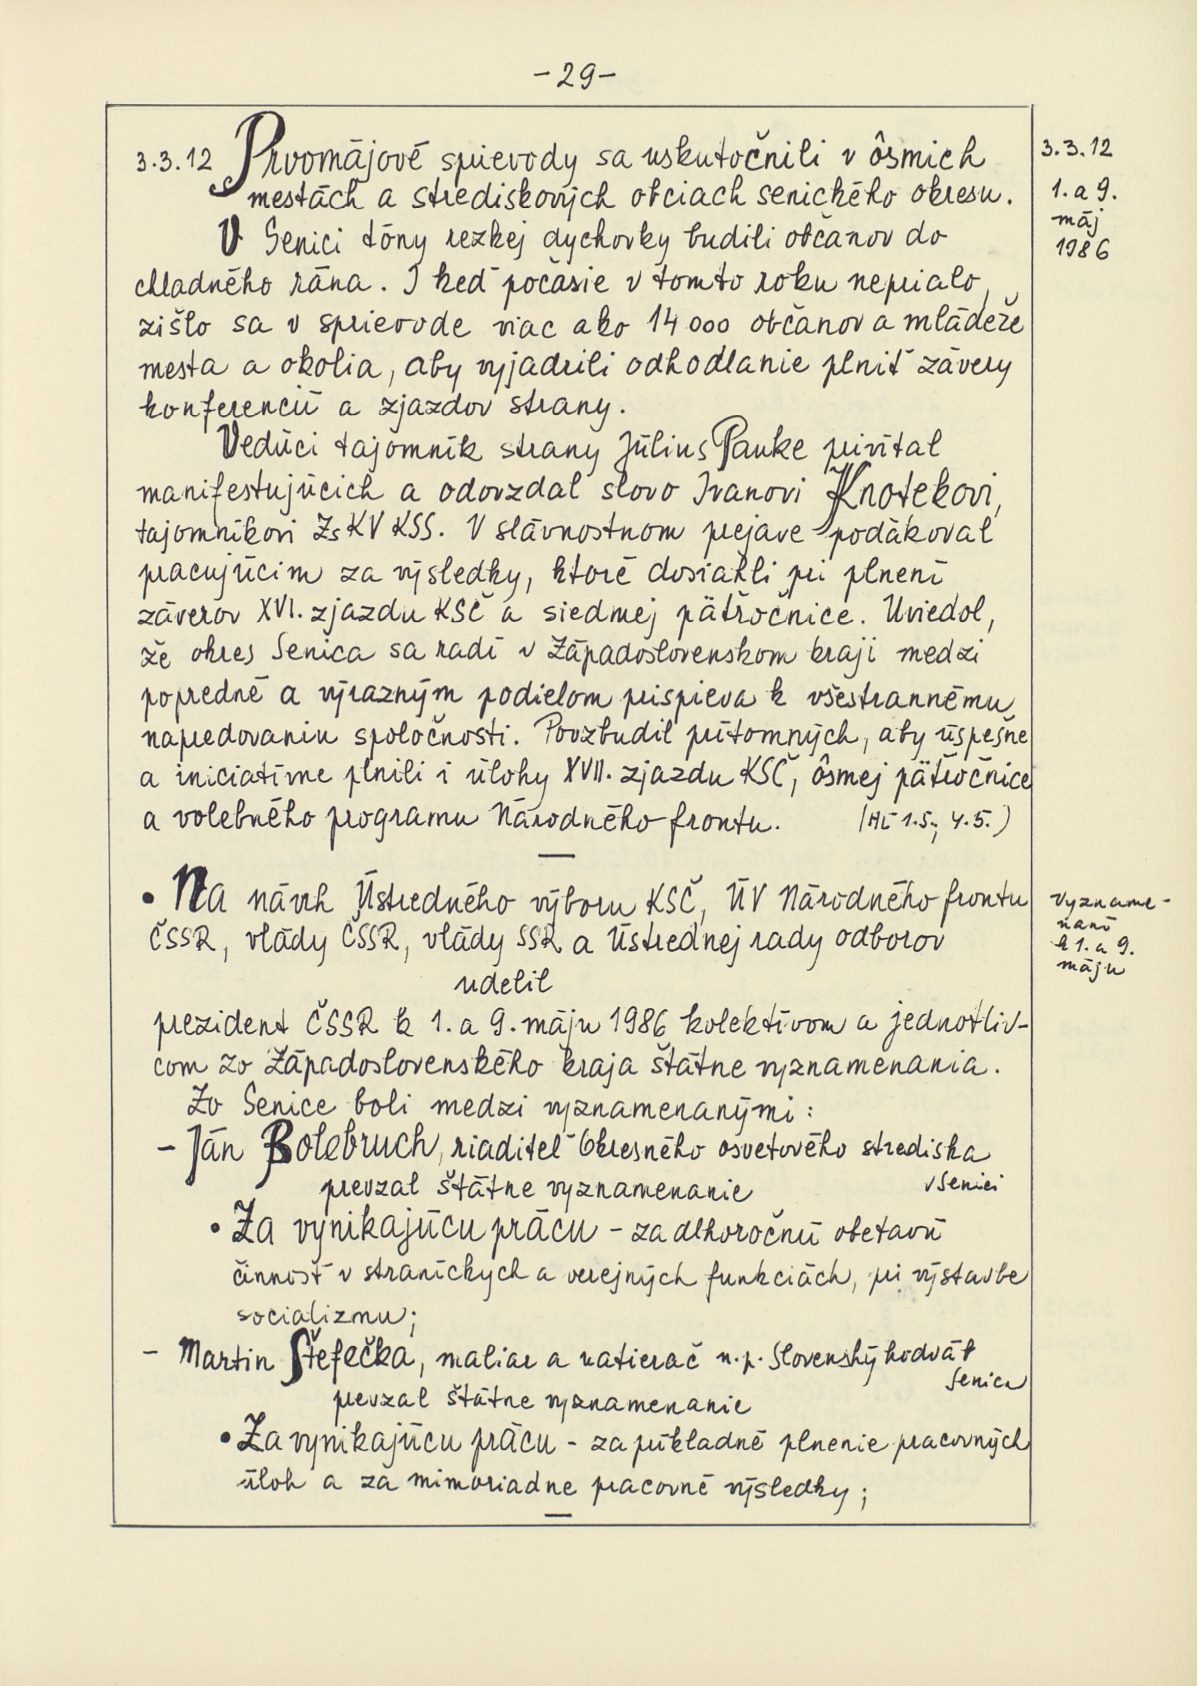 -29-
3.3.12 Prvomájové sprievody sa uskutočnili v ôsmich
mestách a strediskových obciach senického okresu.
V Senici tóny rezkej dychovky budili občanov do
chladného rána. I keď počasie v tomto roku neprialo,
zišlo sa v sprievode viac ako 14 000 občanov a mládeže
mesta a okolia, aby vyjadrili odhodlanie plniť závery
konferencií a zjazdov strany.
Vedúci tajomník strany Július Pauke privítal
manifestujúcich a odovzdal slovo Ivanovi Knotekovi,
tajomníkovi ZsKV KSS. V slávnostnom prejave poďakoval
pracujúcim za výsledky, ktoré dosiahli pri plnení
záverov XVI. zjazdu KSČ a siedmej päťročnice. Uviedol,
že okres Senica sa radí v Západoslovenskom kraji medzi
popredné a výrazným podielom prispieva k všestrannému
napredovaniu spoločnosti. Povzbudil prítomných, aby úspešne
a iniciatívne plnili i úlohy XVII. zjazdu KSČ, ôsmej päťročnice
a volebného programu Národného frontu. (HĽ 1.5., 4.5.)
• Na návrh Ústredného výboru KSČ, ÚV Národného frontu
ČSSR, vlády ČSSR, vlády SSR a Ústrednej rady odborov
udelil
prezident ČSSR k 1. a 9. máju 1986 kolektívom a jednotliv-
com zo Západoslovenského kraja štátne vyznamenania.
Zo Senice boli medzi vyznamenanými:
- Ján Bolebruch, riaditeľ Okresného osvetového strediska
v Senici
prevzal štátne vyznamenanie
• Za vynikajúcu prácu - za dlhoročnú obetavú
činnosť v straníckych a verejných funkciách, pri výstavbe
socializmu;
- Martin Štefečka, maliar a natierač n.p. Slovenský hodváb
Senica
prevzal štátne vyznamenanie
• Za vynikajúcu prácu - za príkladné plnenie pracovných
úloh a za mimoriadne pracovné výsledky;
3.3.12
1. a 9.
máj
1986
vyzname-
naní
k 1. a 9.
máju